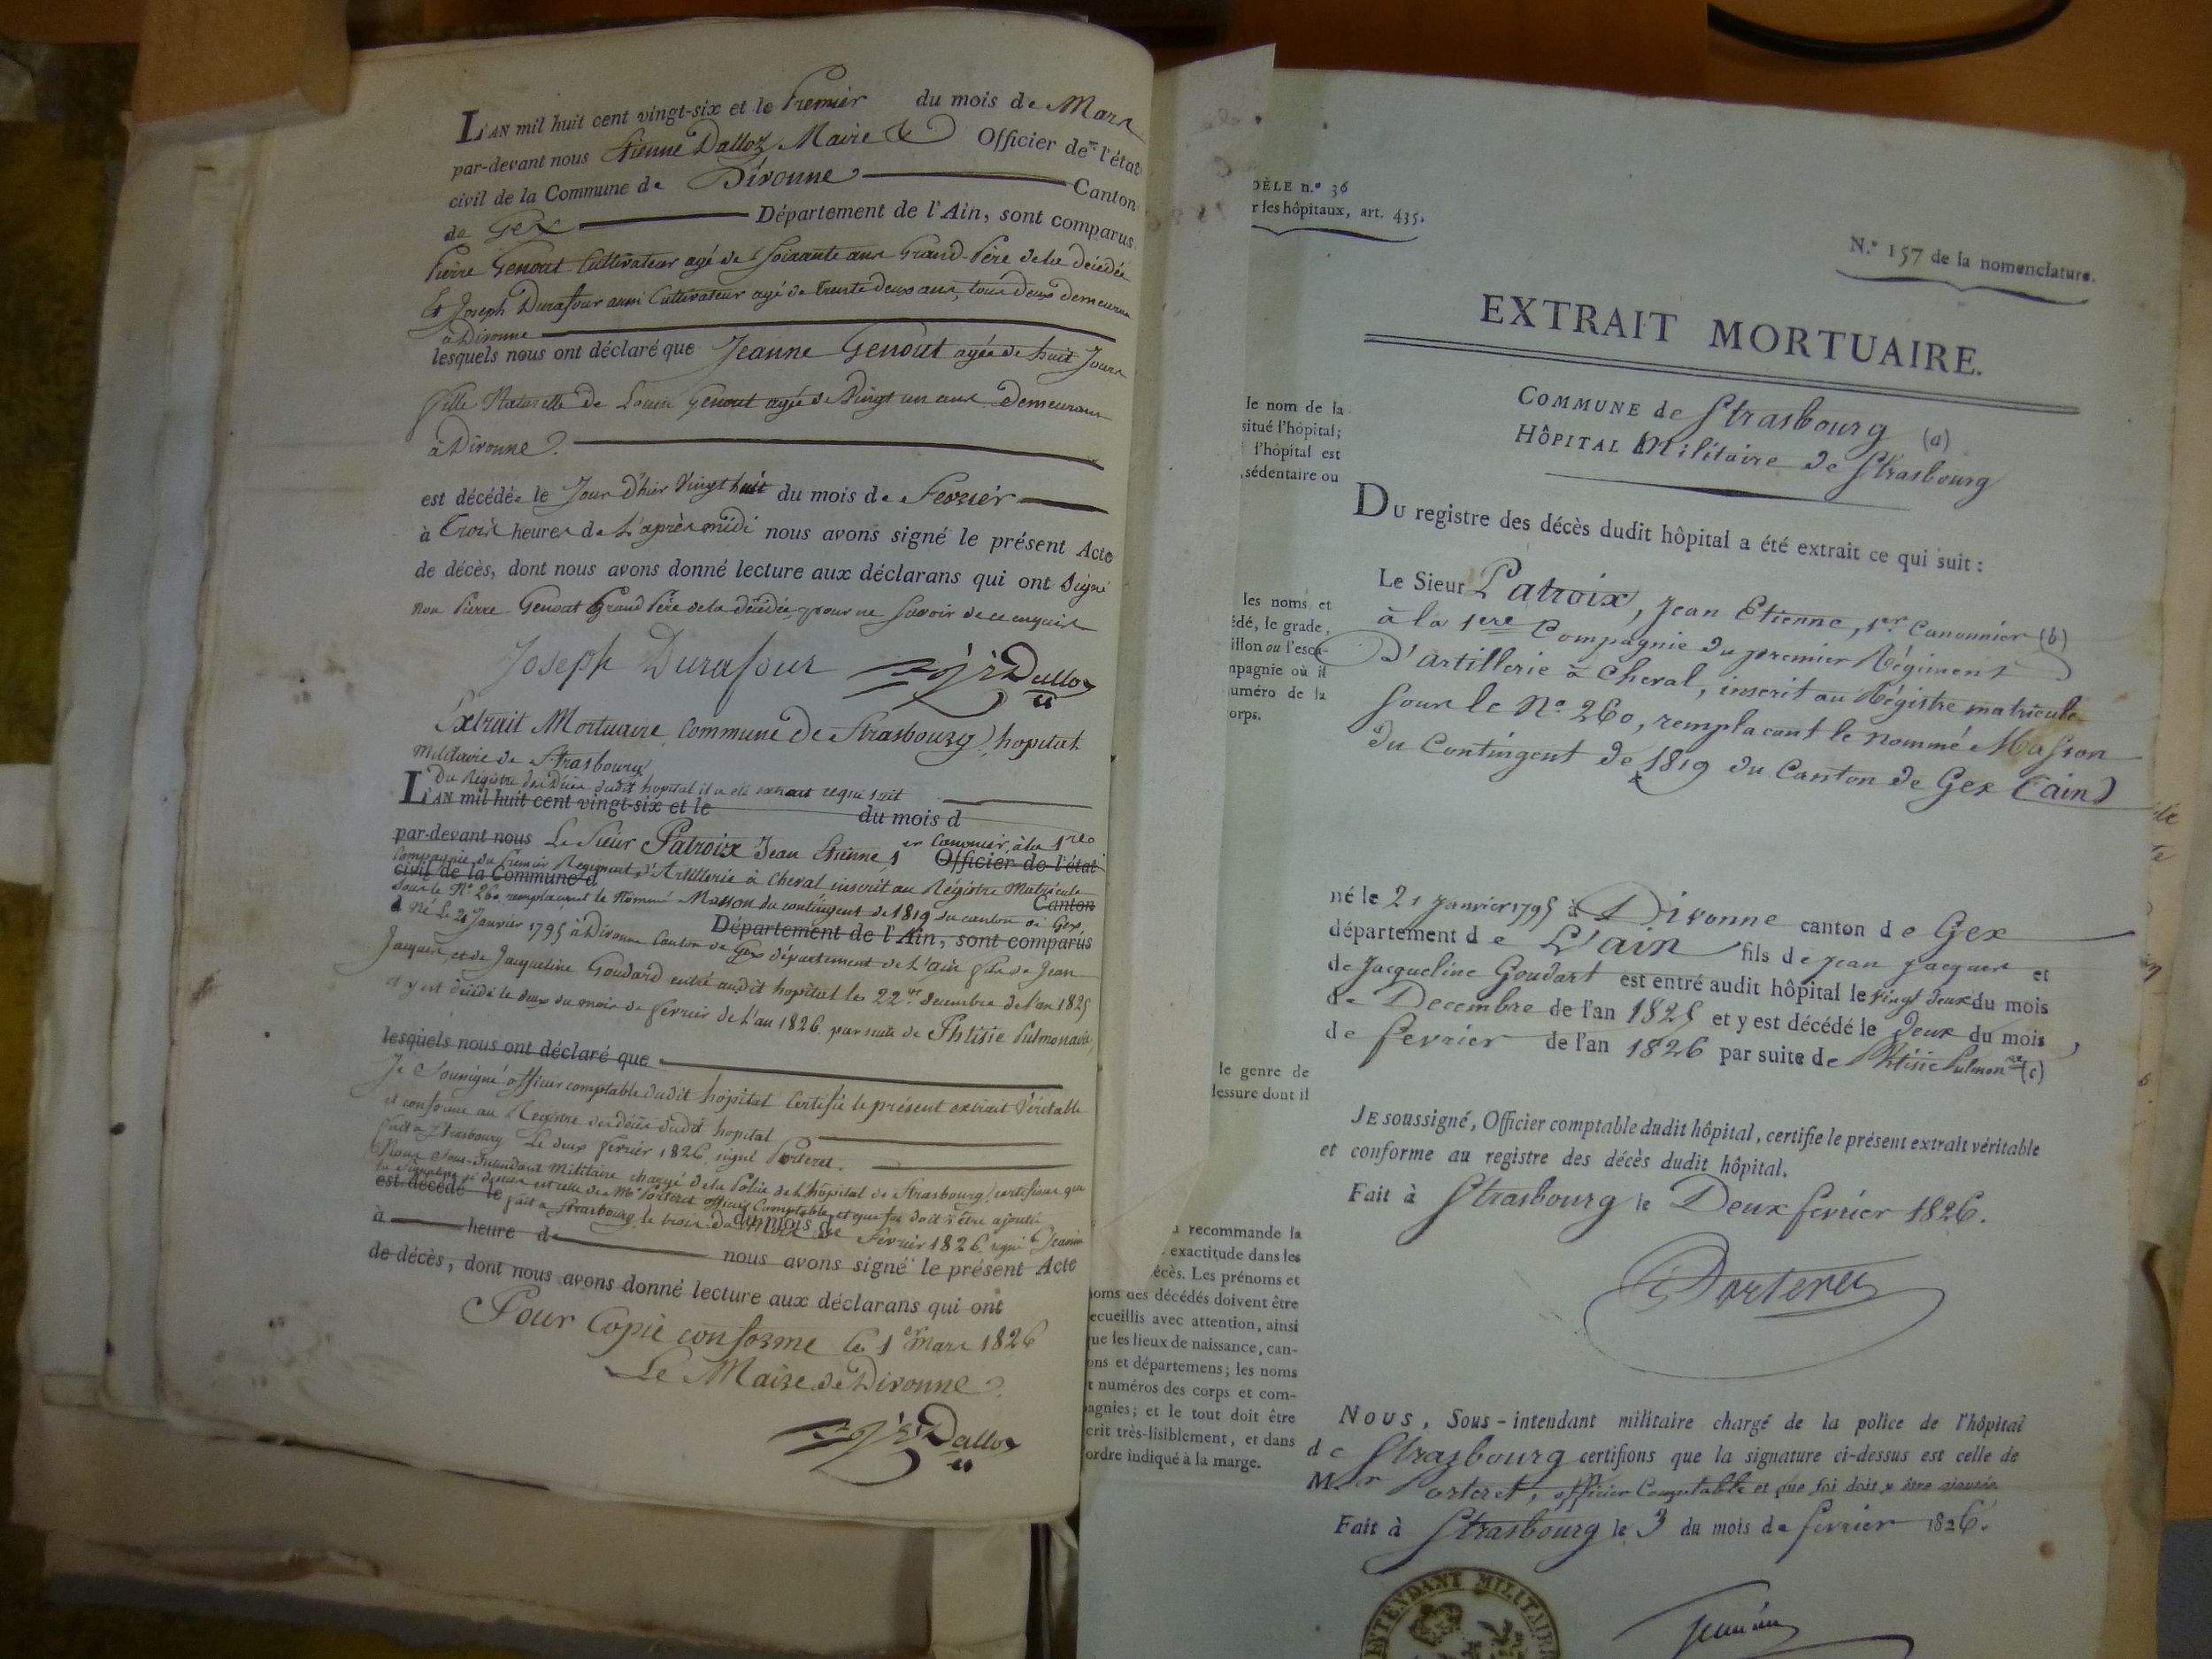 L'AN mil huit cent vingt-six et le Premier du mois de Mars
par-devant nous Etienne Dalloz Maire & Officier de l'état
civil de la Commune de Divonne Canton
de Gex Département de l'Ain, sont comparus
Pierre Genout Cultivateur agé de Soixante ans Grand-Père de la décédée
Et Joseph Durafour aussi Cultivateur agé de trente deux ans, tous deux demeurans
à Divonne
lesquels nous ont déclaré que Jeanne Genout agée de huit Jours
fille Naturelle de Louise Genout agée de Vingt un ans Demeurans
à Divonne.
est décédée le Jour d'hier Vingt huit du mois de Fevrier
à Trois heures de L'après midi nous avons signé le présent Acte
de décès, dont nous avons donné lecture aux déclarans qui ont Signé
non Pierre Genout Grand Père de la décédée, pour ne Savoir de ce enquis
Joseph Durafour Dalloz
Extrait Mortuaire Commune de Strasbourg, hopital
Militaire de Strasbourg
Du Registre des Décès dudit hopital il a été extrait ce qui suit
L'AN mil huit cent vingt-six et le du mois d
par-devant nous Le Sieur Patroix Jean Etienne, 1er Canonier, à la 1re Officier de l'état
Compagnie du Premier Regiment d'Artillerie à Cheval inscrit au Régistre Matricule
civil de la Commune d
Sous le N° 260 remplaçant le Nommé Masson du contingent de 1819 du canton de Gex Canton
d Né Le 21 Janvier 1795 à Divonne Canton de Gex département de L'ain fils de Jean
Département de l'Ain, sont comparus
Jacques, et de Jacqueline Goudard entré audit hopital le 22 decembre de l'an 1825
et y est décédé le deux du mois de fevrier de L'an 1826 par suite de Phtisie Pulmonaire,
lesquels nous ont déclaré que
Je Soussigné officier comptable dudit hôpital Certifie le présent extrait Véritable
et conforme au Registre des décès dudit hopital
fait a Strasbourg Le deux fevrier 1826, signé Porteret.
Nous Sous-Intendant Militaire chargé de la Police de L'hôpital de Strasbourg, certifions que
la Signature ci dessus est celle de Mr Porteret officier Comptable et que foi doit y être ajoutée
est décédé le fait a Strasbourg le trois du mois de Fevrier 1826, signé Jeanin
du mois d
à heure d nous avons signé le présent Acte
de décès, dont nous avons donné lecture aux déclarans qui ont
Pour Copie conforme le 1er Mars 1826
Le Maire de Divonne
Dalloz
DÈLE n.° 36
r les hôpitaux, art. 435.
N.° 157 de la nomenclature.
EXTRAIT MORTUAIRE.
COMMUNE de Strasbourg (a)
HÔPITAL Militaire de Strasbourg
le nom de la
situé l'hôpital;
l'hôpital est
sédentaire ou
DU registre des décès dudit hôpital a été extrait ce qui suit :
Le Sieur Patroix, Jean Etienne, 1er Canonnier (b)
à la 1ere Compagnie du premier Régiment
D'artillerie à Cheval, inscrit au Régistre matricule
Sous le N° 260, remplacant le nommé Masson
du Contingent de 1819 du Canton de Gex (ain)
les noms et
édé, le grade,
illon ou l'esca-
mpagnie où il
uméro de la
orps.
né le 21 Janvier 1795 à Divonne canton de Gex
département de L'ain fils de Jean Jacques et
de Jacqueline Goudart est entré audit hôpital le vingt deux du mois
de Decembre de l'an 1825 et y est décédé le Deux du mois
de fevrier de l'an 1826 par suite de Phtisie Pulmonre (c)
le genre de
lessure dont il
JE soussigné, Officier comptable dudit hôpital, certifie le présent extrait véritable
et conforme au registre des décès dudit hôpital.
Fait à Strasbourg le Deux fevrier 1826.
Porteret
recommande la
exactitude dans les
écès. Les prénoms et
oms des décédés doivent être
ecueillis avec attention, ainsi
que les lieux de naissance, can-
ons et départemens; les noms
t numéros des corps et com-
agnies; et le tout doit être
crit très-lisiblement, et dans
ordre indiqué à la marge.
NOUS, Sous-intendant militaire chargé de la police de l'hôpital
de Strasbourg certifions que la signature ci-dessus est celle de
M.r Porteret, officier Comptable et que foi doit y être ajoutée
Fait à Strasbourg le 3 du mois de fevrier 1826.
INTENDANT MILITAIRE
Jeanin